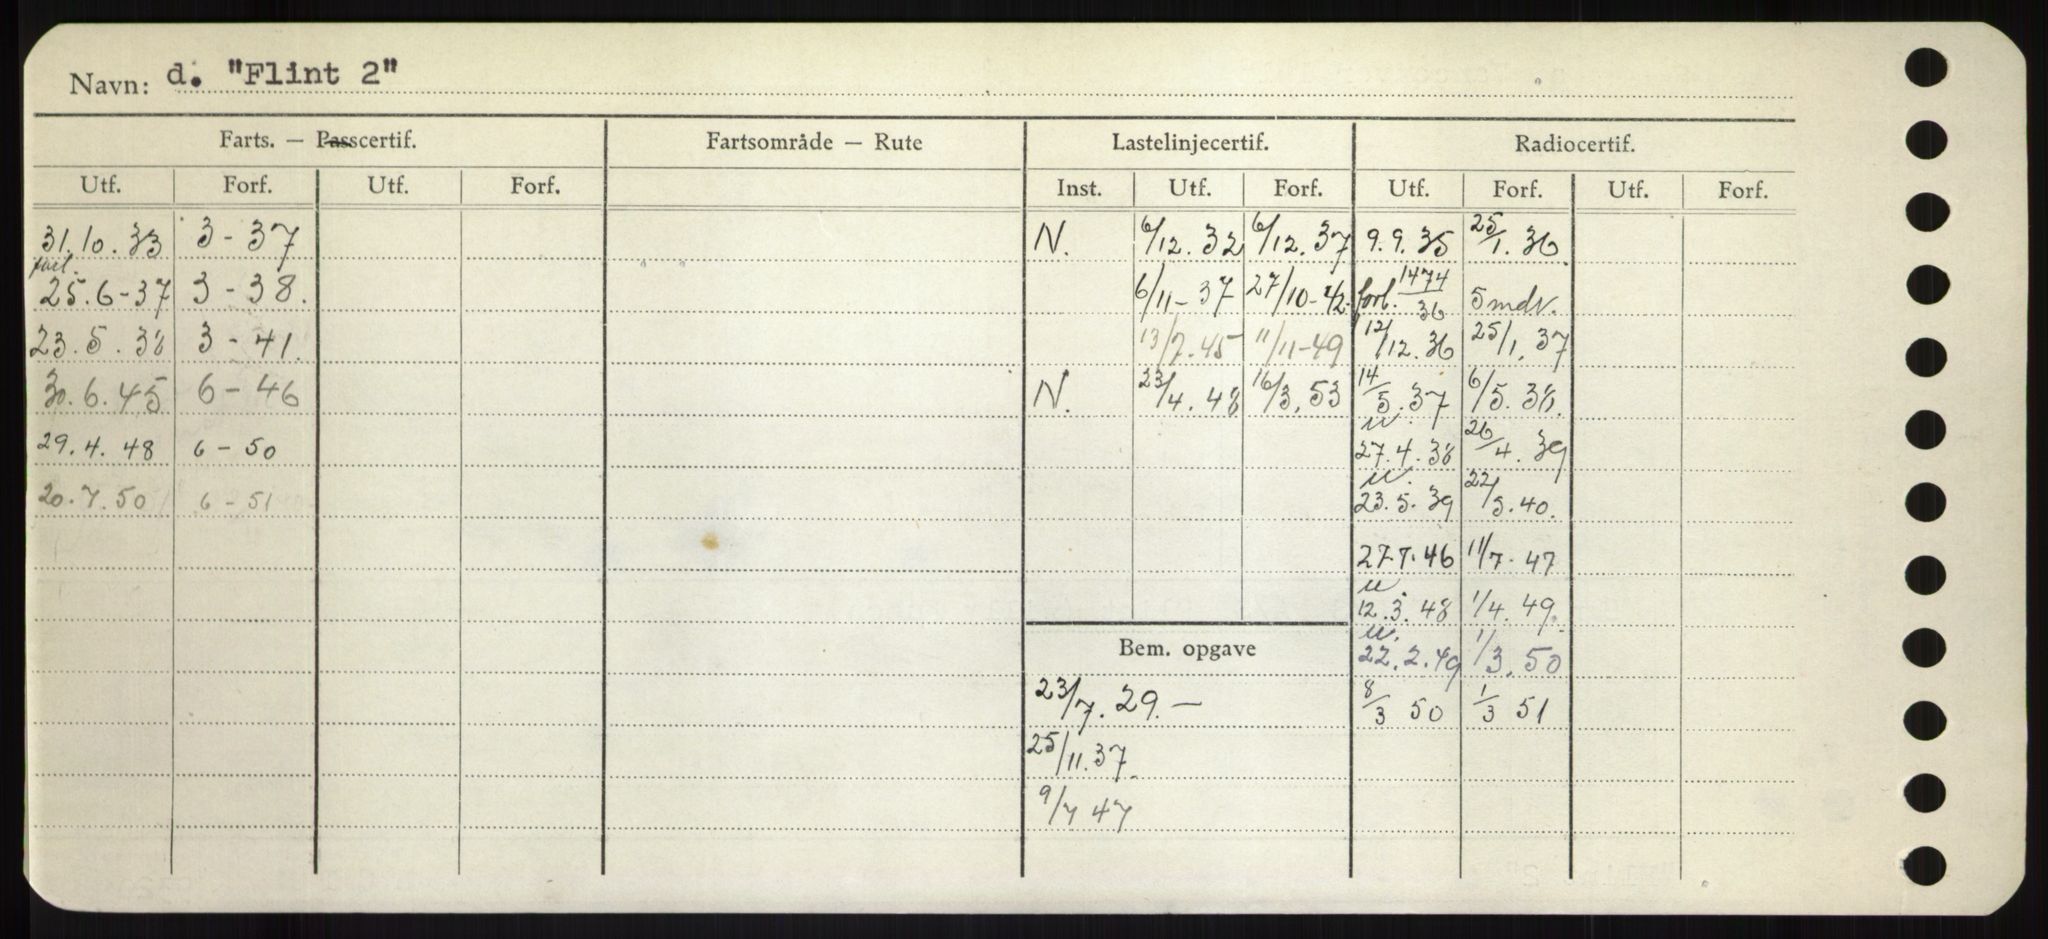 Navn: d. "Flint 2"
Farts. — Passcertif. Fartsområde — Rute Lastelinjecertif. Radiocertif.
Utf. Forf. Utf. Forf. Inst. Utf. Forf. Utf. Forf. Utf. Forf.
31.10.33 3-37 N. 6/12.32 6/12.37 9.9.35 25/1.36
forl.
25.6-37 3-38. 6/11-37 27/10-42. forl. 1474/36 5 mdr.
23.5.38 3-41. 13/7.45 11/11-49 12/12.36 25/1.37
30.6.45 6-46 N. 23/4.48 16/3.53 14/5.37 6/5.38.
u.
29.4.48 6-50 27.4.38 26/4.39
u.
20.7.50 6-51 23.5.39 22/5.40.
27.7.46 11/7.47
u.
12.3.48 1/4.49.
u.
Bem. opgave 22.2.49 1/3.50
23/7.29.— 8/3 50 1/3 51
25/11.37.
9/7 47